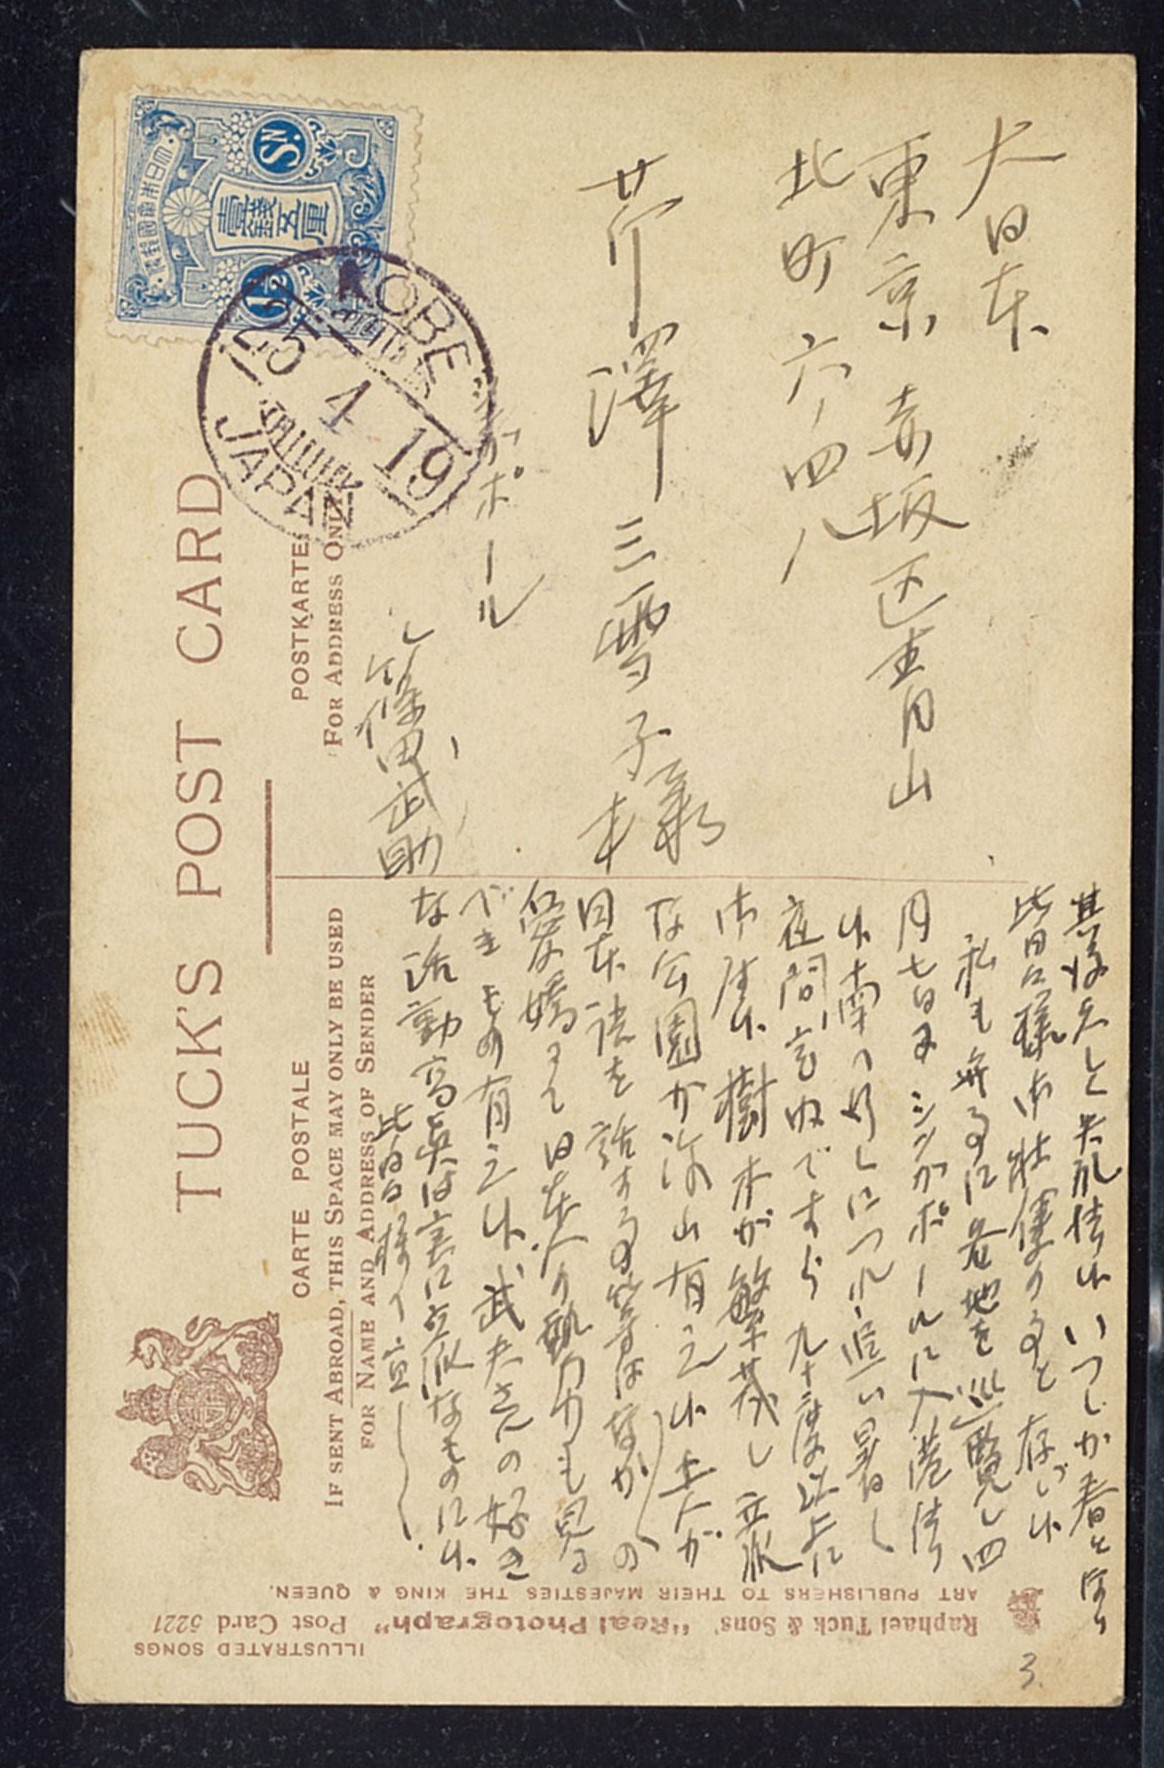 大日本
東京赤坂区青山
北町六ノ四八
芹澤三雪子様
シンガポール
篠田武助
其後久しく失礼 候 いつしか春と
皆々様御壮健の事と存じ候
私も無事に各地を巡覧し四
月七日 シンガポールに入港 候
南へ行くにつれ追い暑く
夜間 すら九十度以上に
御座候樹木が繁茂し立派
な公園が沢山有之候土人が
日本語を話す事等はなか〳〵の
愛嬌 日本人の勢力も見る
べきもの有之候武夫さんの好き
な活動写真は実に立派なものに候
皆々様
TUCK'S POST CARD
CARTE POSTALE
POSTKARTE
IF SENT ABROAD, THIS SPACE MAY ONLY BE USED
FOR NAME AND ADDRESS OF SENDER
FOR ADDRESS ONLY
大日本帝國郵便
壹錢五厘
1½ SN.
KOBE
25 4 19
JAPAN
ILLUSTRATED SONGS
Raphael Tuck & Sons' "Real Photograph" Post Card 5221
ART PUBLISHERS TO THEIR MAJESTIES THE KING & QUEEN.
3.